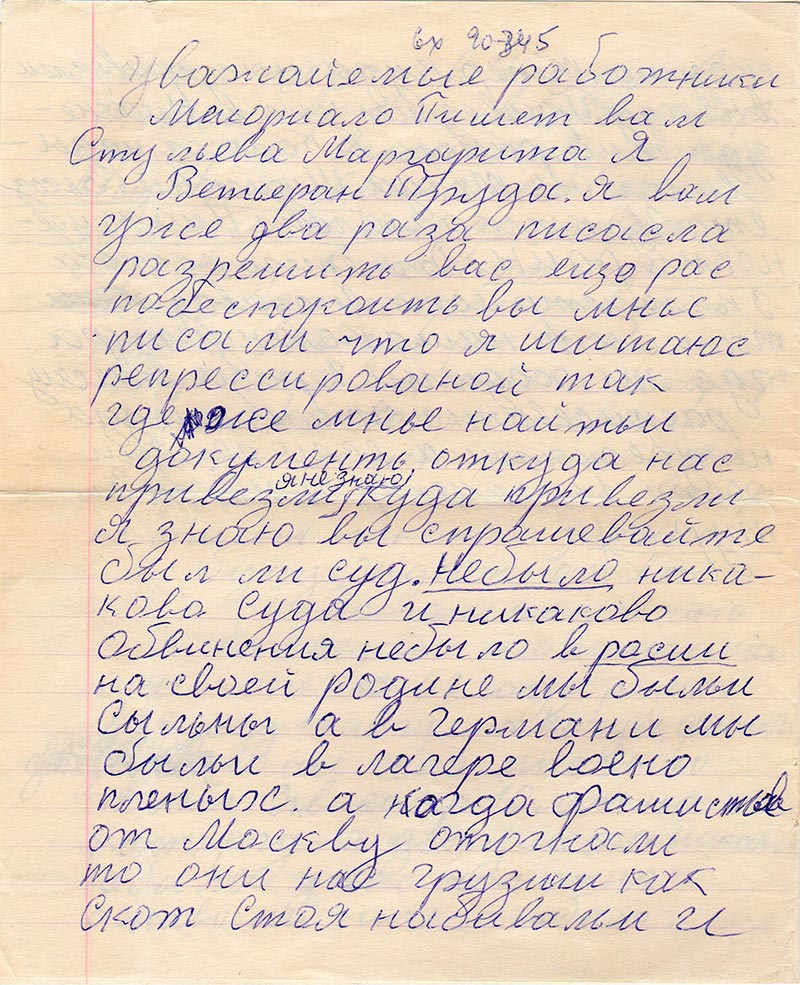 вх 90-345
Уважайемые работники
Мемориало Пишет вам
Стульева Маргарита Я
Ветьеран Труда. я вам
уже два раза писасла
разрешить вас ещо рас
побеспокоить вы мньс
писали что я шитаюс
репрессированой так
где же мнье найтьи
документь. откуда нас
привезли я не знаю, куда привезли
я знаю вы спрашевайте
был ли суд. небыло ника-
кова суда и никаково
обвинения небыло в расии
на своей родине мы быльи
Сыльны а в германи мы
быльи в лагере воено
пленых. а когда фашистов
от Москву отогнали
то они нас грузили как
Скот Стоя набивальи и